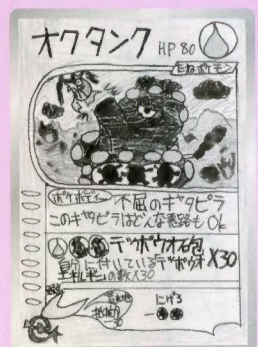 オクタンク HP 80
たねポケモン
ポケボディー 不屈のキャタピラ
このキャタピラはどんな悪路もOk
テッポウオ砲 X30
身に付いているテッポウオ
エネルギーの数X30
にげる